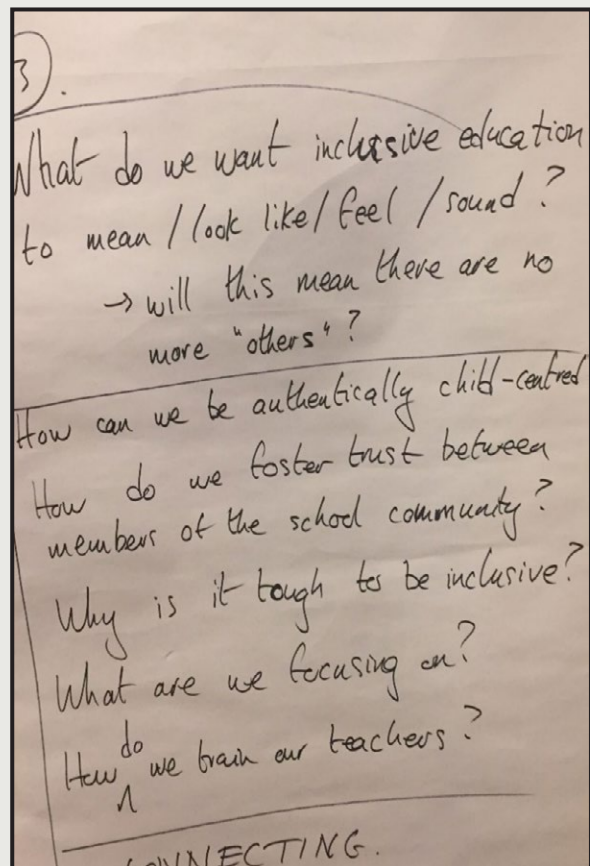 3.
What do we want inclusive education
to mean / look like / feel / sound ?
→ will this mean there are no
more "others" ?
How can we be authentically child-centred
How do we foster trust between
members of the school community?
Why is it tough to be inclusive?
What are we focusing on?
How do we train our teachers?
CONNECTING.